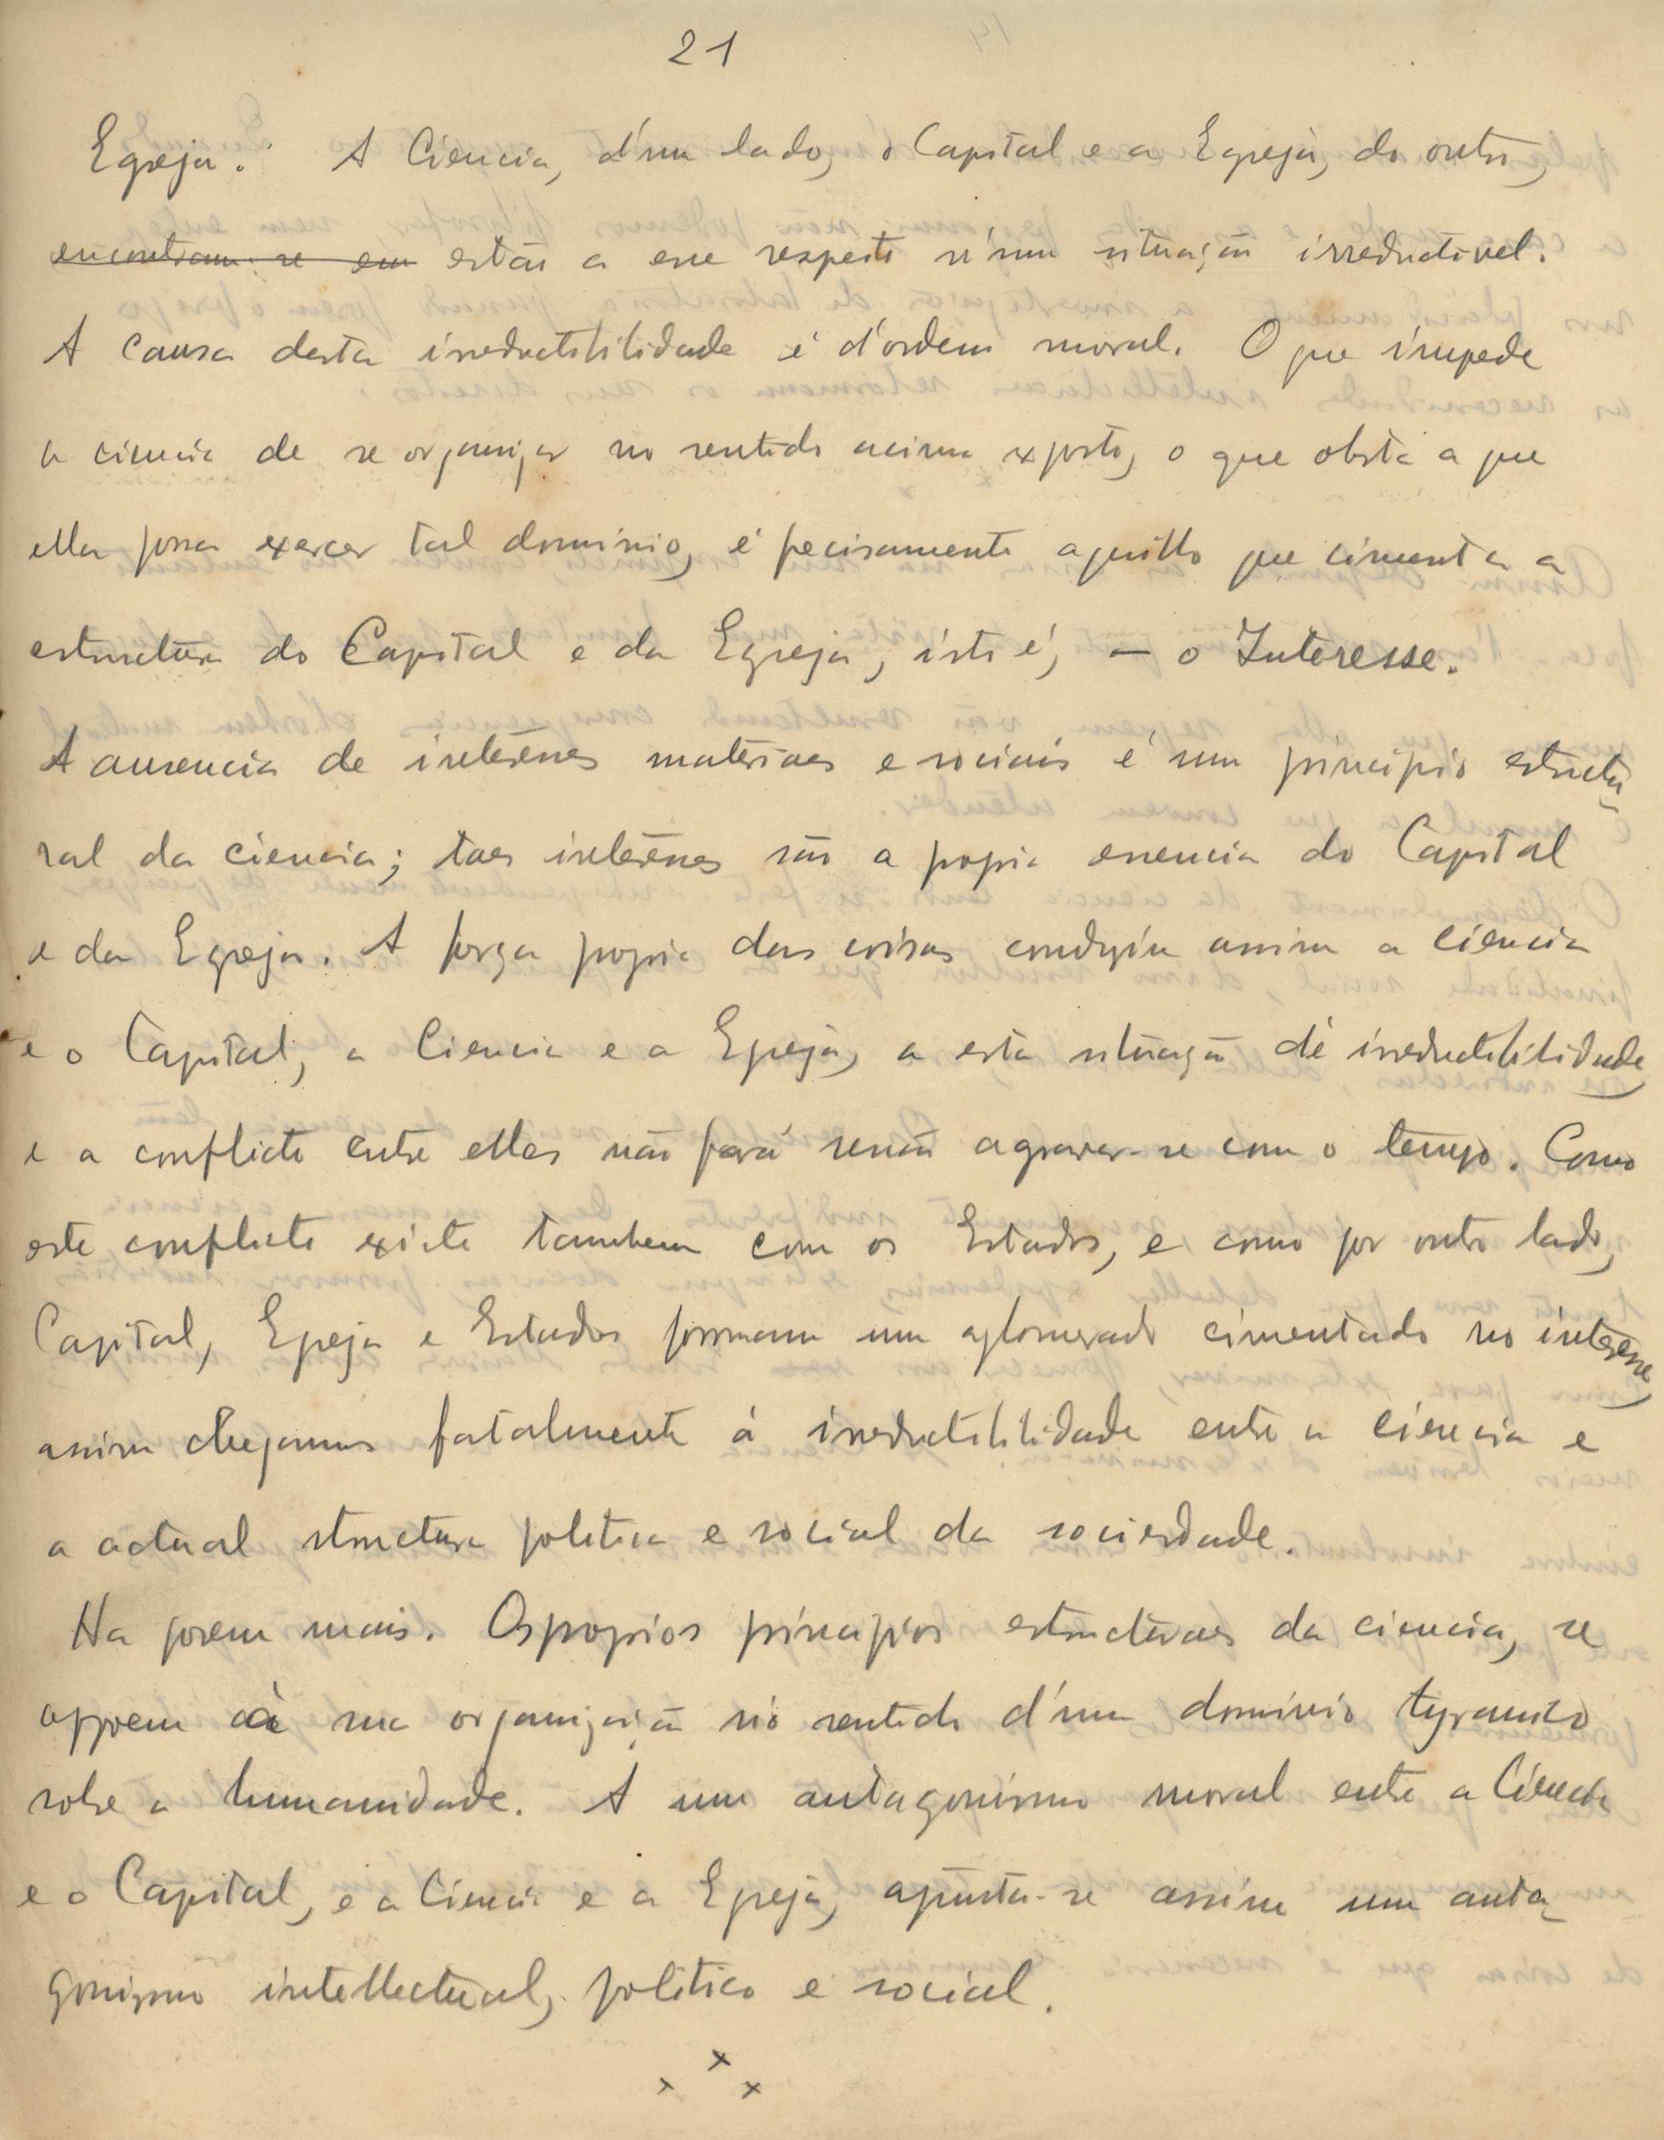 21
Egreja. A Ciencia, d'um lado, o Capital e a Egreja, do outro,
encontram-se em estão a esse respeito n'uma situação irreductivel.
A causa desta irreductibilidade é d'ordem moral. O que impede
a ciencia de se organizar no sentido acima exposto, o que obsta a que
ella possa exercer tal dominio, é precisamente aquillo que cimenta a
estructura do Capital e da Egreja, isto é, — o Interesse.
A ausencia de interesses materiaes e sociais é um principio estructu
ral da ciencia; taes interesses são a propria essencia do Capital
e da Egreja. A força propria das coisas conduziu assim a ciencia
e o Capital, a Ciencia e a Egreja, a esta situação de irreductibilidade
e a conflicto entre elles não fará senão agravar-se com o tempo. Como
este conflicto existe tambem com os Estados, e como por outro lado,
Capital, Egreja e Estados formam um aglomerado cimentado no interesse,
assim chegamos fatalmente á irreductibilidade entre a ciencia e
a actual structura politica e social da sociedade.
Ha porem mais. Os proprios principios estructuraes da ciencia, se
oppoem à sua organização no sentido d'um dominio tyranico
sobre a humanidade. A um antagonismo moral entre a Ciencia
e o Capital, e a Ciencia e a Egreja, ajunta-se assim um anta
gonismo intellectual, politico e social.
x x x